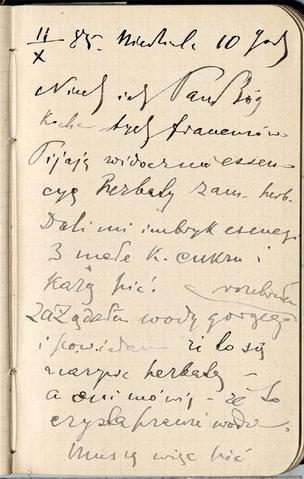 11/X 85. Niedziela 10 godz
Niech ich Pan Bóg
kocha tych francuzów
Pijają widocznie essen-
cyę herbaty zam. herb.
Dali mi imbryk esencyi
3 małe k. cukru i
każą pić!
Zażądałem wody gorącej
i powiadam że to się
nazywa herbata –
a oni mówią – że to
czysta prawie woda.
Muszę więc pić